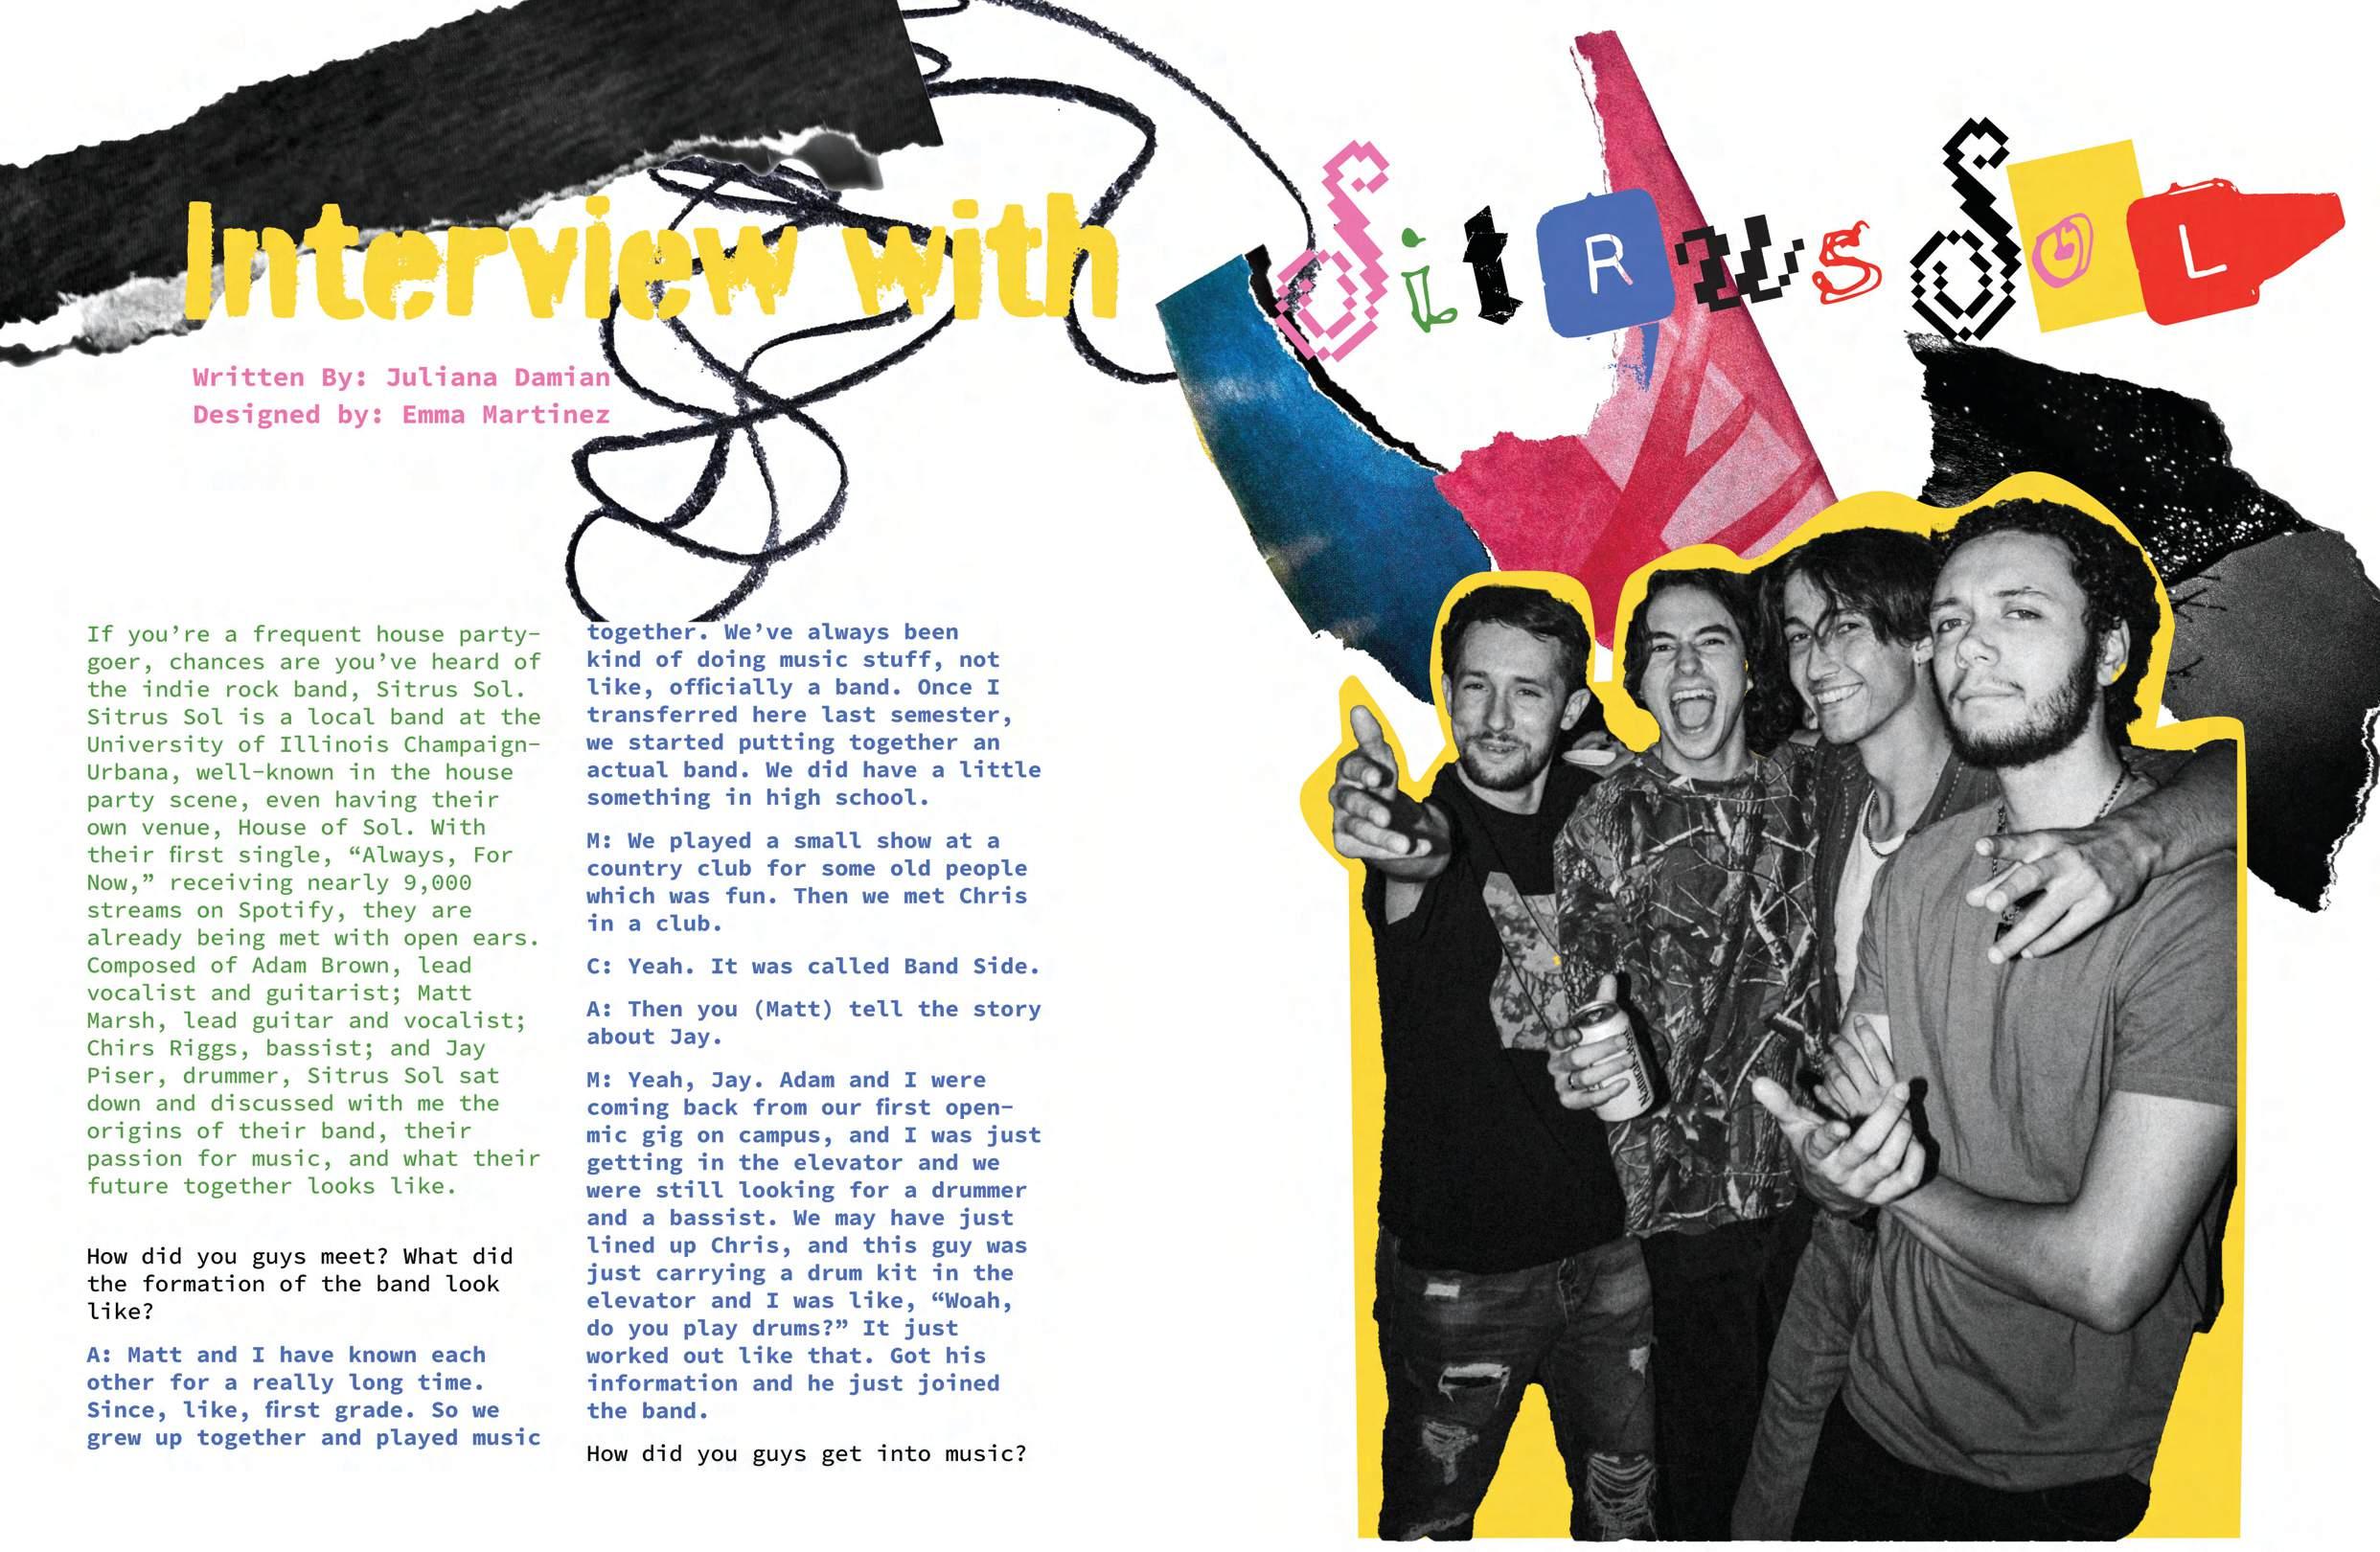 Interview with
Sitrus Sol
Written By: Juliana Damian
Designed by: Emma Martinez
If you’re a frequent house party-
goer, chances are you’ve heard of
the indie rock band, Sitrus Sol.
Sitrus Sol is a local band at the
University of Illinois Champaign-
Urbana, well-known in the house
party scene, even having their
own venue, House of Sol. With
their first single, “Always, For
Now,” receiving nearly 9,000
streams on Spotify, they are
already being met with open ears.
Composed of Adam Brown, lead
vocalist and guitarist; Matt
Marsh, lead guitar and vocalist;
Chirs Riggs, bassist; and Jay
Piser, drummer, Sitrus Sol sat
down and discussed with me the
origins of their band, their
passion for music, and what their
future together looks like.
How did you guys meet? What did
the formation of the band look
like?
A: Matt and I have known each
other for a really long time.
Since, like, first grade. So we
grew up together and played music
together. We’ve always been
kind of doing music stuff, not
like, officially a band. Once I
transferred here last semester,
we started putting together an
actual band. We did have a little
something in high school.
M: We played a small show at a
country club for some old people
which was fun. Then we met Chris
in a club.
C: Yeah. It was called Band Side.
A: Then you (Matt) tell the story
about Jay.
M: Yeah, Jay. Adam and I were
coming back from our first open-
mic gig on campus, and I was just
getting in the elevator and we
were still looking for a drummer
and a bassist. We may have just
lined up Chris, and this guy was
just carrying a drum kit in the
elevator and I was like, “Woah,
do you play drums?” It just
worked out like that. Got his
information and he just joined
the band.
How did you guys get into music?